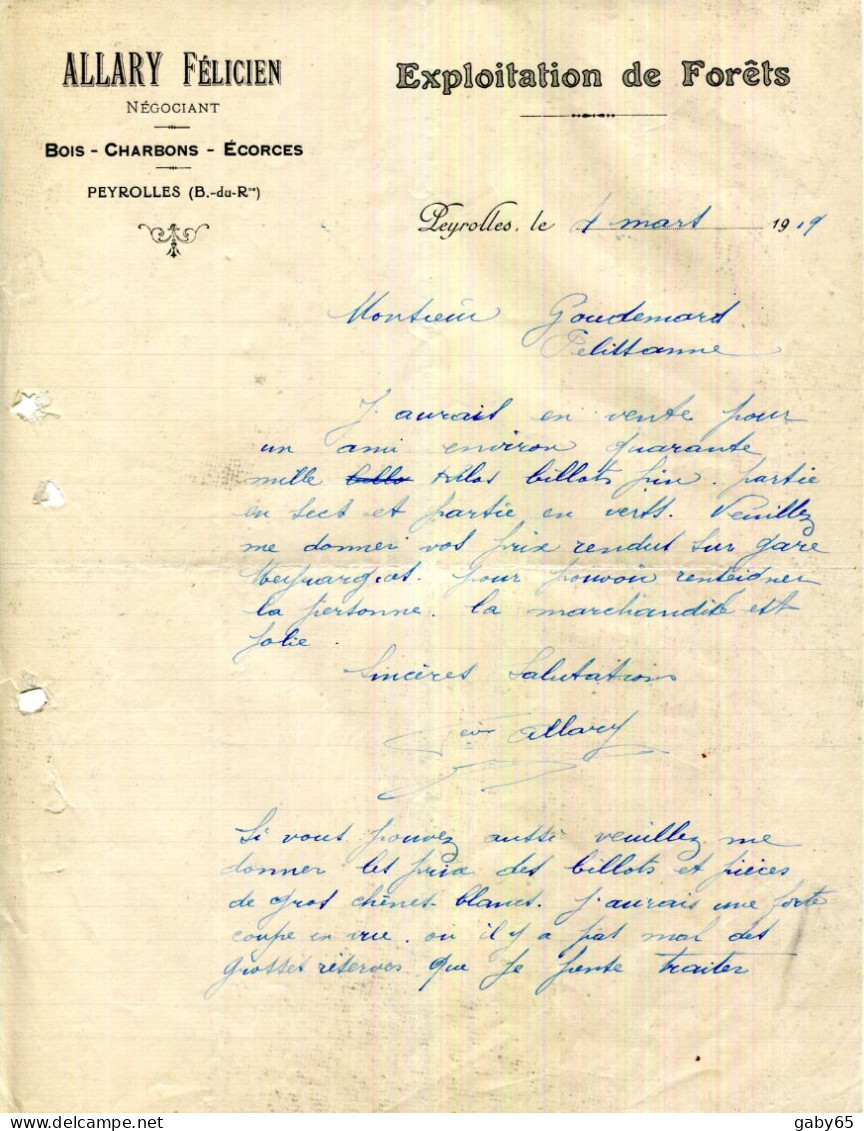 ALLARY FÉLICIEN
NÉGOCIANT
BOIS - CHARBONS - ÉCORCES
PEYROLLES (B.-du-Rne)
Exploitation de Forêts
Peyrolles, le 4 mars 1919
Monsieur Goudemard
Pelissanne
J'aurais en vente pour
un ami environ quarante
mille billo kilos billots pin. partie
en secs et partie en verts. Veuillez
me donner vos prix rendus sur gare
Meyrargues. pour pouvoir renseigner
la personne. la marchandise est
jolie.
Sincères Salutations
Allary
Si vous pouvez aussi veuillez me
donner les prix des billots et pièces
de gros chênes-blancs. J'aurais une forte
coupe en vue. où il y a pas mal des
grosses réserves que je pense traiter
delcampe.net
gaby65